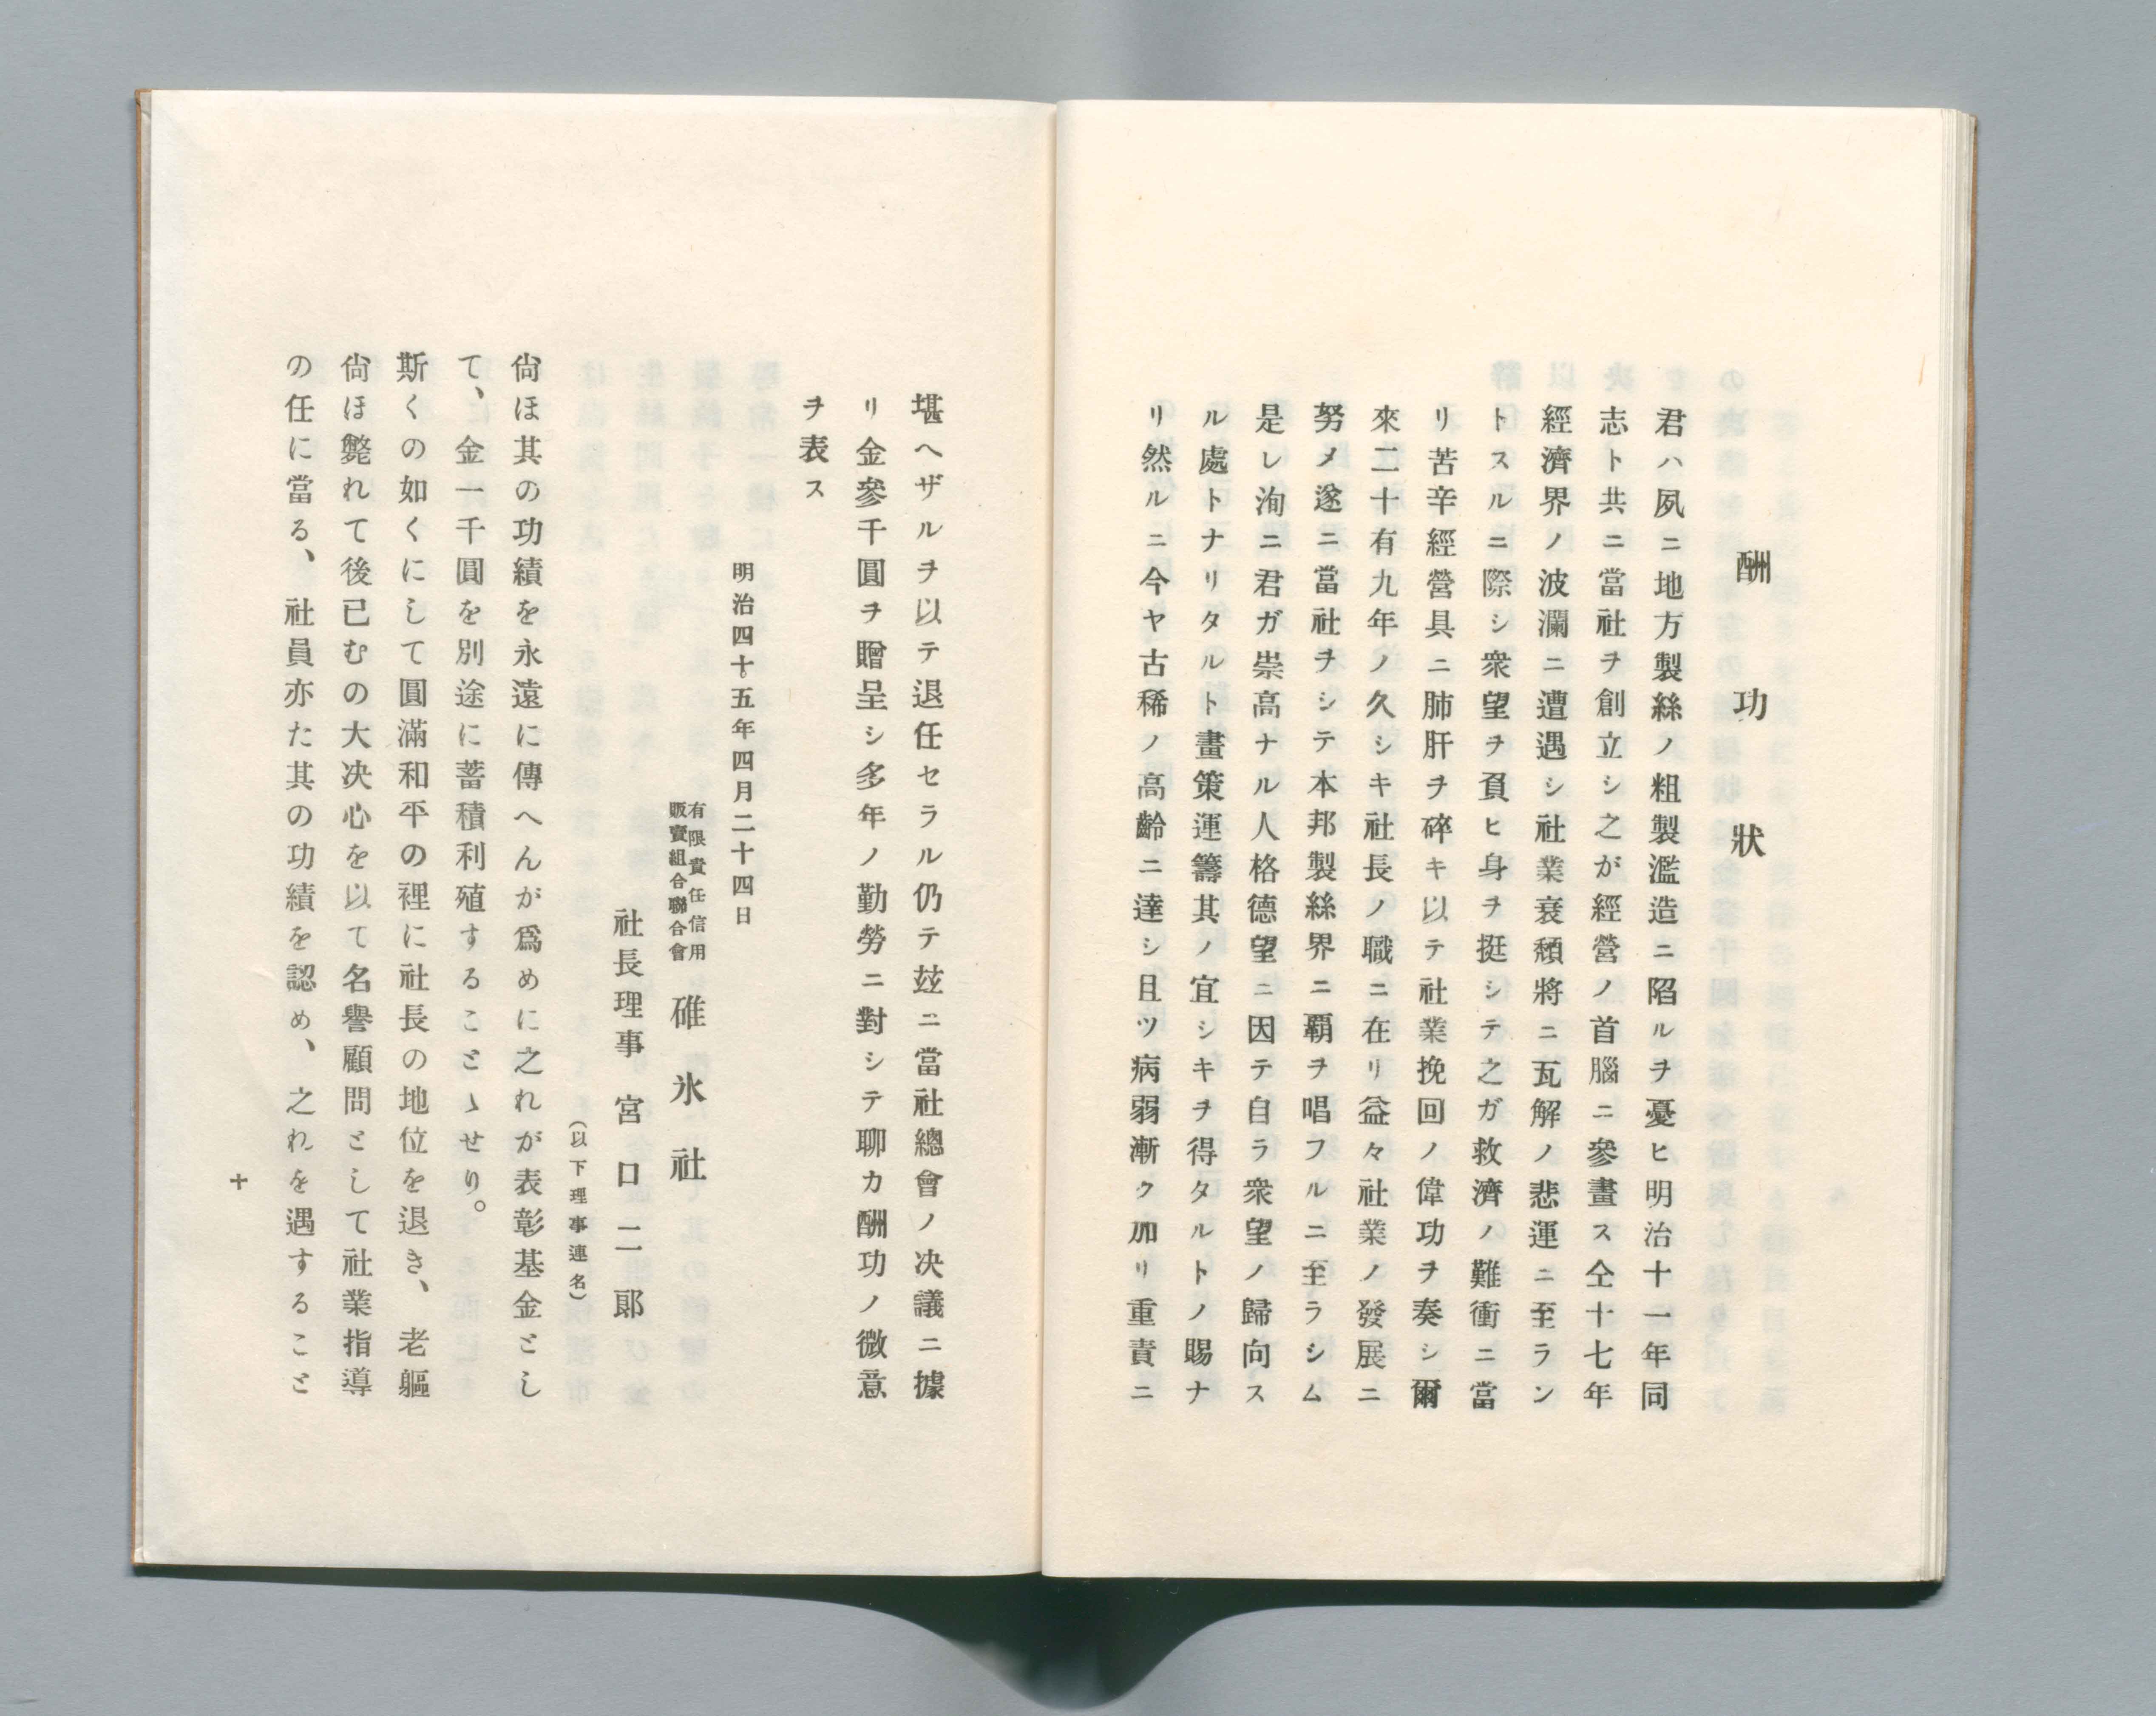 酬功狀
君ハ夙ニ地方製絲ノ粗製濫造ニ陷ルヲ憂ヒ明治十一年同
志ト共ニ當社ヲ創立シ之が經營ノ首腦ニ參畫ス仝十七年
經濟界ノ波瀾ニ遭遇シ社業衰頽將ニ瓦解ノ悲運ニ至ラン
トスルニ際シ衆望ヲ負ヒ身ヲ挺シテ之ガ救濟ノ難衝ニ當
リ苦辛經營具ニ肺肝ヲ碎キ以テ社業挽回ノ偉功ヲ奏シ爾
來二十有九年ノ久シキ社長ノ職ニ在リ益々社業ノ發展ニ
努メ遂ニ當社ヲシテ本邦製絲界ニ覇ヲ唱フルニ至ラシム
是レ洵ニ君ガ崇高ナル人格德望ニ因テ自ラ衆望ノ歸向ス
ル處トナリタルト畫策運籌其ノ宜シキヲ得タルトノ賜ナ
リ然ルニ今ヤ古稀ノ高齡ニ達シ且ツ病弱漸ク加リ重責ニ
堪ヘザルヲ以テ退任セラル仍テ玆ニ當社總會ノ决議ニ據
リ金參千圓ヲ贈呈シ多年ノ勤勞ニ對シテ聊カ酬功ノ微意
ヲ表ス
明治四十五年四月二十四日
有限責任信用
販賣組合聯合會
碓氷社
社長理事 宮口二郞
(以下理事連名)
尙ほ其の功績を永遠に傳へんが爲めに之れが表彰基金とし
て、金一千圓を別途に蓄積利殖することゝせり。
斯くの如くにして圓滿和平の裡に社長の地位を退き、老軀
尙ほ斃れて後已むの大决心を以て名譽顧問として社業指導
の任に當る、社員亦た其の功績を認め、之れを遇すること
十